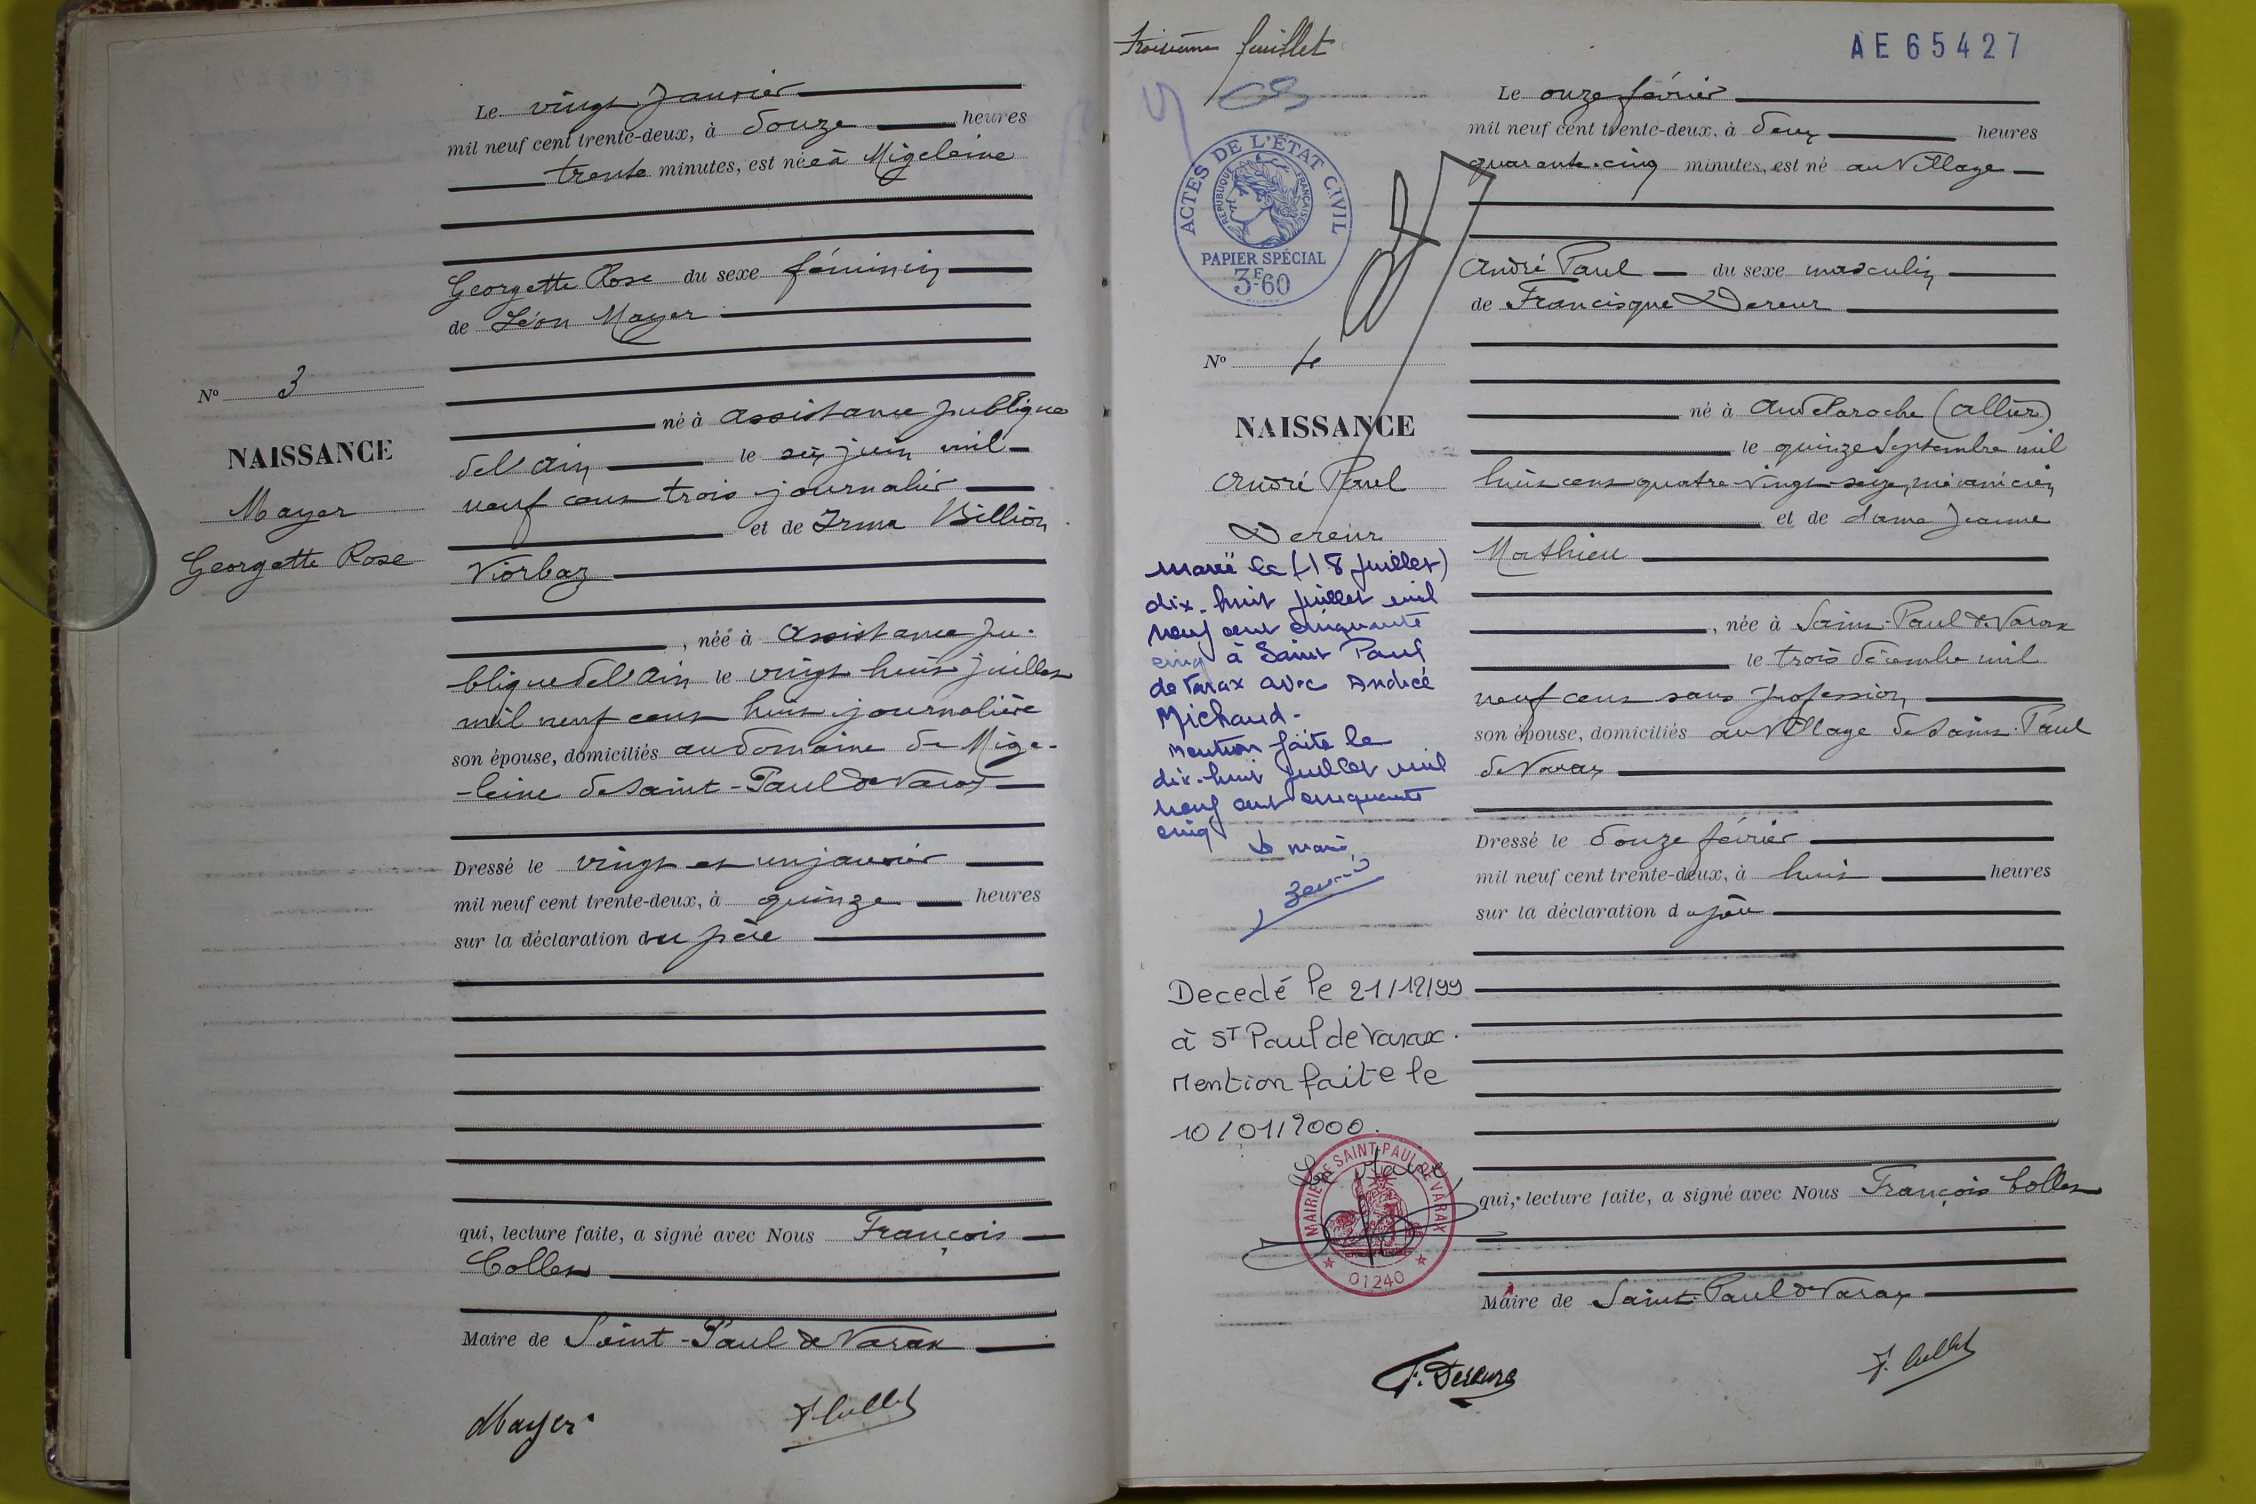 Le vingt Janvier
mil neuf cent trente-deux, à douze heures
trente minutes, est née à Migeleine
Georgette Rose du sexe féminin
de Léon Mayer
né à assistance publique
de l'Ain le six juin mil
neuf cent trois journalier
et de Irma Billion
Viorbaz
, née à Assistance pu-
blique de l'Ain le vingt huit juillet
mil neuf cent huit journalière
son épouse, domiciliés au domaine de Mige-
-leine de Saint-Paul de Varax
Dressé le vingt et un janvier
mil neuf cent trente-deux, à quinze heures
sur la déclaration du père
qui, lecture faite, a signé avec Nous François
Collet
Maire de Saint-Paul de Varax
Mayer
F. Collet
No 3
NAISSANCE
Mayer
Georgette Rose
troisième feuillet
AE 65427
ACTES DE L'ÉTAT CIVIL
RÉPUBLIQUE FRANÇAISE
PAPIER SPÉCIAL
3F.60
No 4
NAISSANCE
André Paul
Dereur
marié le (18 juillet)
dix-huit juillet mil
neuf cent cinquante
cinq à Saint Paul
de Varax avec Andrée
Michaud.
Mention faite le
dix-huit juillet mil
neuf cent cinquante
cinq
Le maire
Decedé le 21/12/99
à ST Paul de Varax.
Mention faite le
10/01/2000.
Le Maire
MAIRIE DE SAINT-PAUL DE VARAX
01240
Le onze février
mil neuf cent trente-deux, à deux heures
quarante-cinq minutes, est né au Village
André Paul du sexe masculin
de Francisque Dereur
né à Andelaroche (Allier)
le quinze Septembre mil
huit cent quatre-vingt-seize, mécanicien
et de dame Jeanne
Mathieu
, née à Saint-Paul de Varax
le trois décembre mil
neuf cent sans profession
son épouse, domiciliés au Village de Saint-Paul
de Varax
Dressé le douze février
mil neuf cent trente-deux, à huit heures
sur la déclaration du père
qui, lecture faite, a signé avec Nous François Collet
Maire de Saint-Paul de Varax
F. Dereure
F. Collet